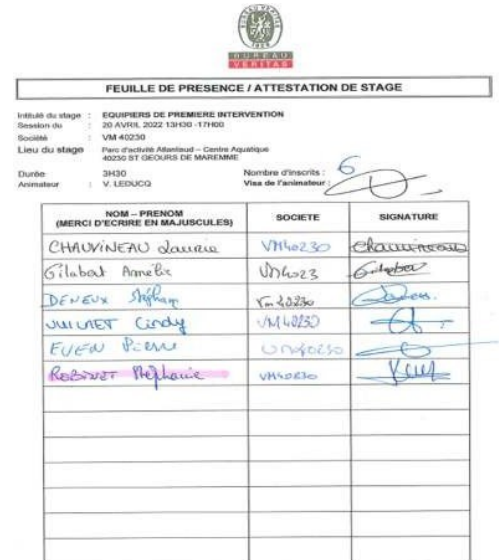 BUREAU VERITAS
1828
BUREAU
VERITAS
FEUILLE DE PRESENCE / ATTESTATION DE STAGE
Intitulé du stage : EQUIPIERS DE PREMIERE INTERVENTION
Session du : 20 AVRIL 2022 13H30 -17H00
Société : VM 40230
Lieu du stage : Parc d'activité Atlantisud – Centre Aquatique
40230 ST GEOURS DE MAREMME
Durée : 3H30 Nombre d'inscrits : 6
Animateur : V. LEDUCQ Visa de l'animateur :
NOM – PRENOM
(MERCI D'ECRIRE EN MAJUSCULES) SOCIETE SIGNATURE
CHAUVINEAU Laurie VM40230 Chauvineau
Gilabert Amélie VM4023 Gilabert
DENEUX Stéphane Vm 40230
VUILLAET Cindy VM40230
EVEN Pierre VM40230
ROBINET Stéphanie VM40230